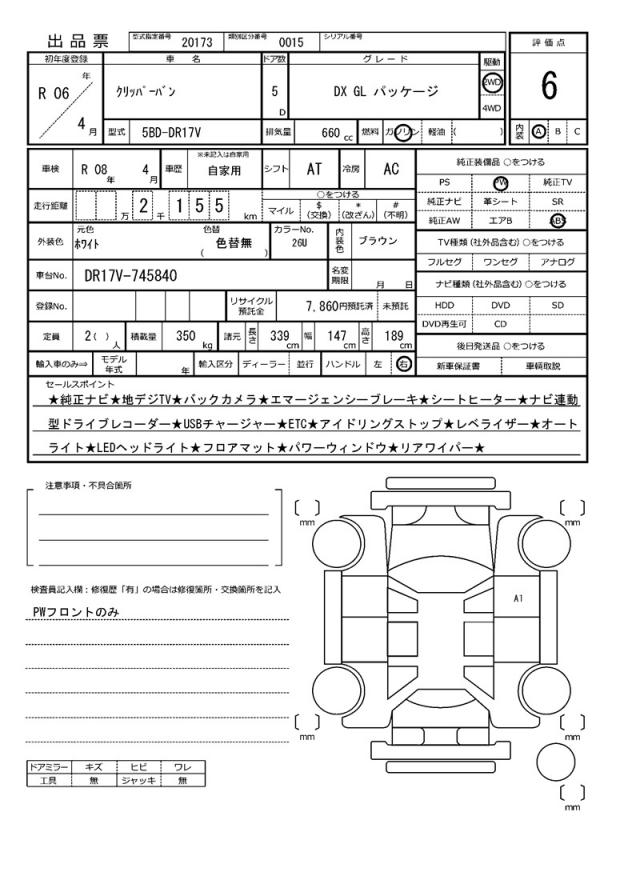 出品票 型式指定番号 20173 類別区分番号 0015 シリアル番号
評価点
6
内装 A B C
初年度登録 車名 ドア数 グレード 駆動
R 06 年 4 月 クリッパーバン 5 D DX GL パッケージ 2WD 4WD
型式 5BD-DR17V 排気量 660 cc 燃料 ガソリン 軽油 ( )
車検 R 08 年 4 月 車歴 ※未記入は自家用 自家用 シフト AT 冷房 AC
走行距離 万 2 千 1 5 5 km
○をつける
マイル $(交換) *(改ざん) #(不明)
外装色 元色 ホワイト 色替 色替無 ( ) カラーNo. 26U 内装色 ブラウン
車台No. DR17V-745840 名変期限 月 日
登録No. リサイクル預託金 7,860円預託済 未預託
定員 2( ) 人 積載量 350 kg 諸元 長さ 339 cm 幅 147 cm 高さ 189 cm
輸入車のみ⇒ モデル年式 年 輸入区分 ディーラー 並行 ハンドル 左 右
純正装備品 ○をつける
PS PW 純正TV
純正ナビ 革シート SR
純正AW エアB ABS
TV種類 (社外品含む) ○をつける
フルセグ ワンセグ アナログ
ナビ種類 (社外品含む) ○をつける
HDD DVD SD
DVD再生可 CD
後日発送品 ○をつける
新車保証書 車輌取説
セールスポイント
★純正ナビ★地デジTV★バックカメラ★エマージェンシーブレーキ★シートヒーター★ナビ連動
型ドライブレコーダー★USBチャージャー★ETC★アイドリングストップ★レベライザー★オート
ライト★LEDヘッドライト★フロアマット★パワーウィンドウ★リアワイパー★
注意事項・不具合箇所
検査員記入欄：修復歴「有」の場合は修復箇所・交換箇所を記入
PWフロントのみ
ドアミラー キズ ヒビ ワレ
工具 無 ジャッキ 無
mm
mm
A1
mm
mm
mm